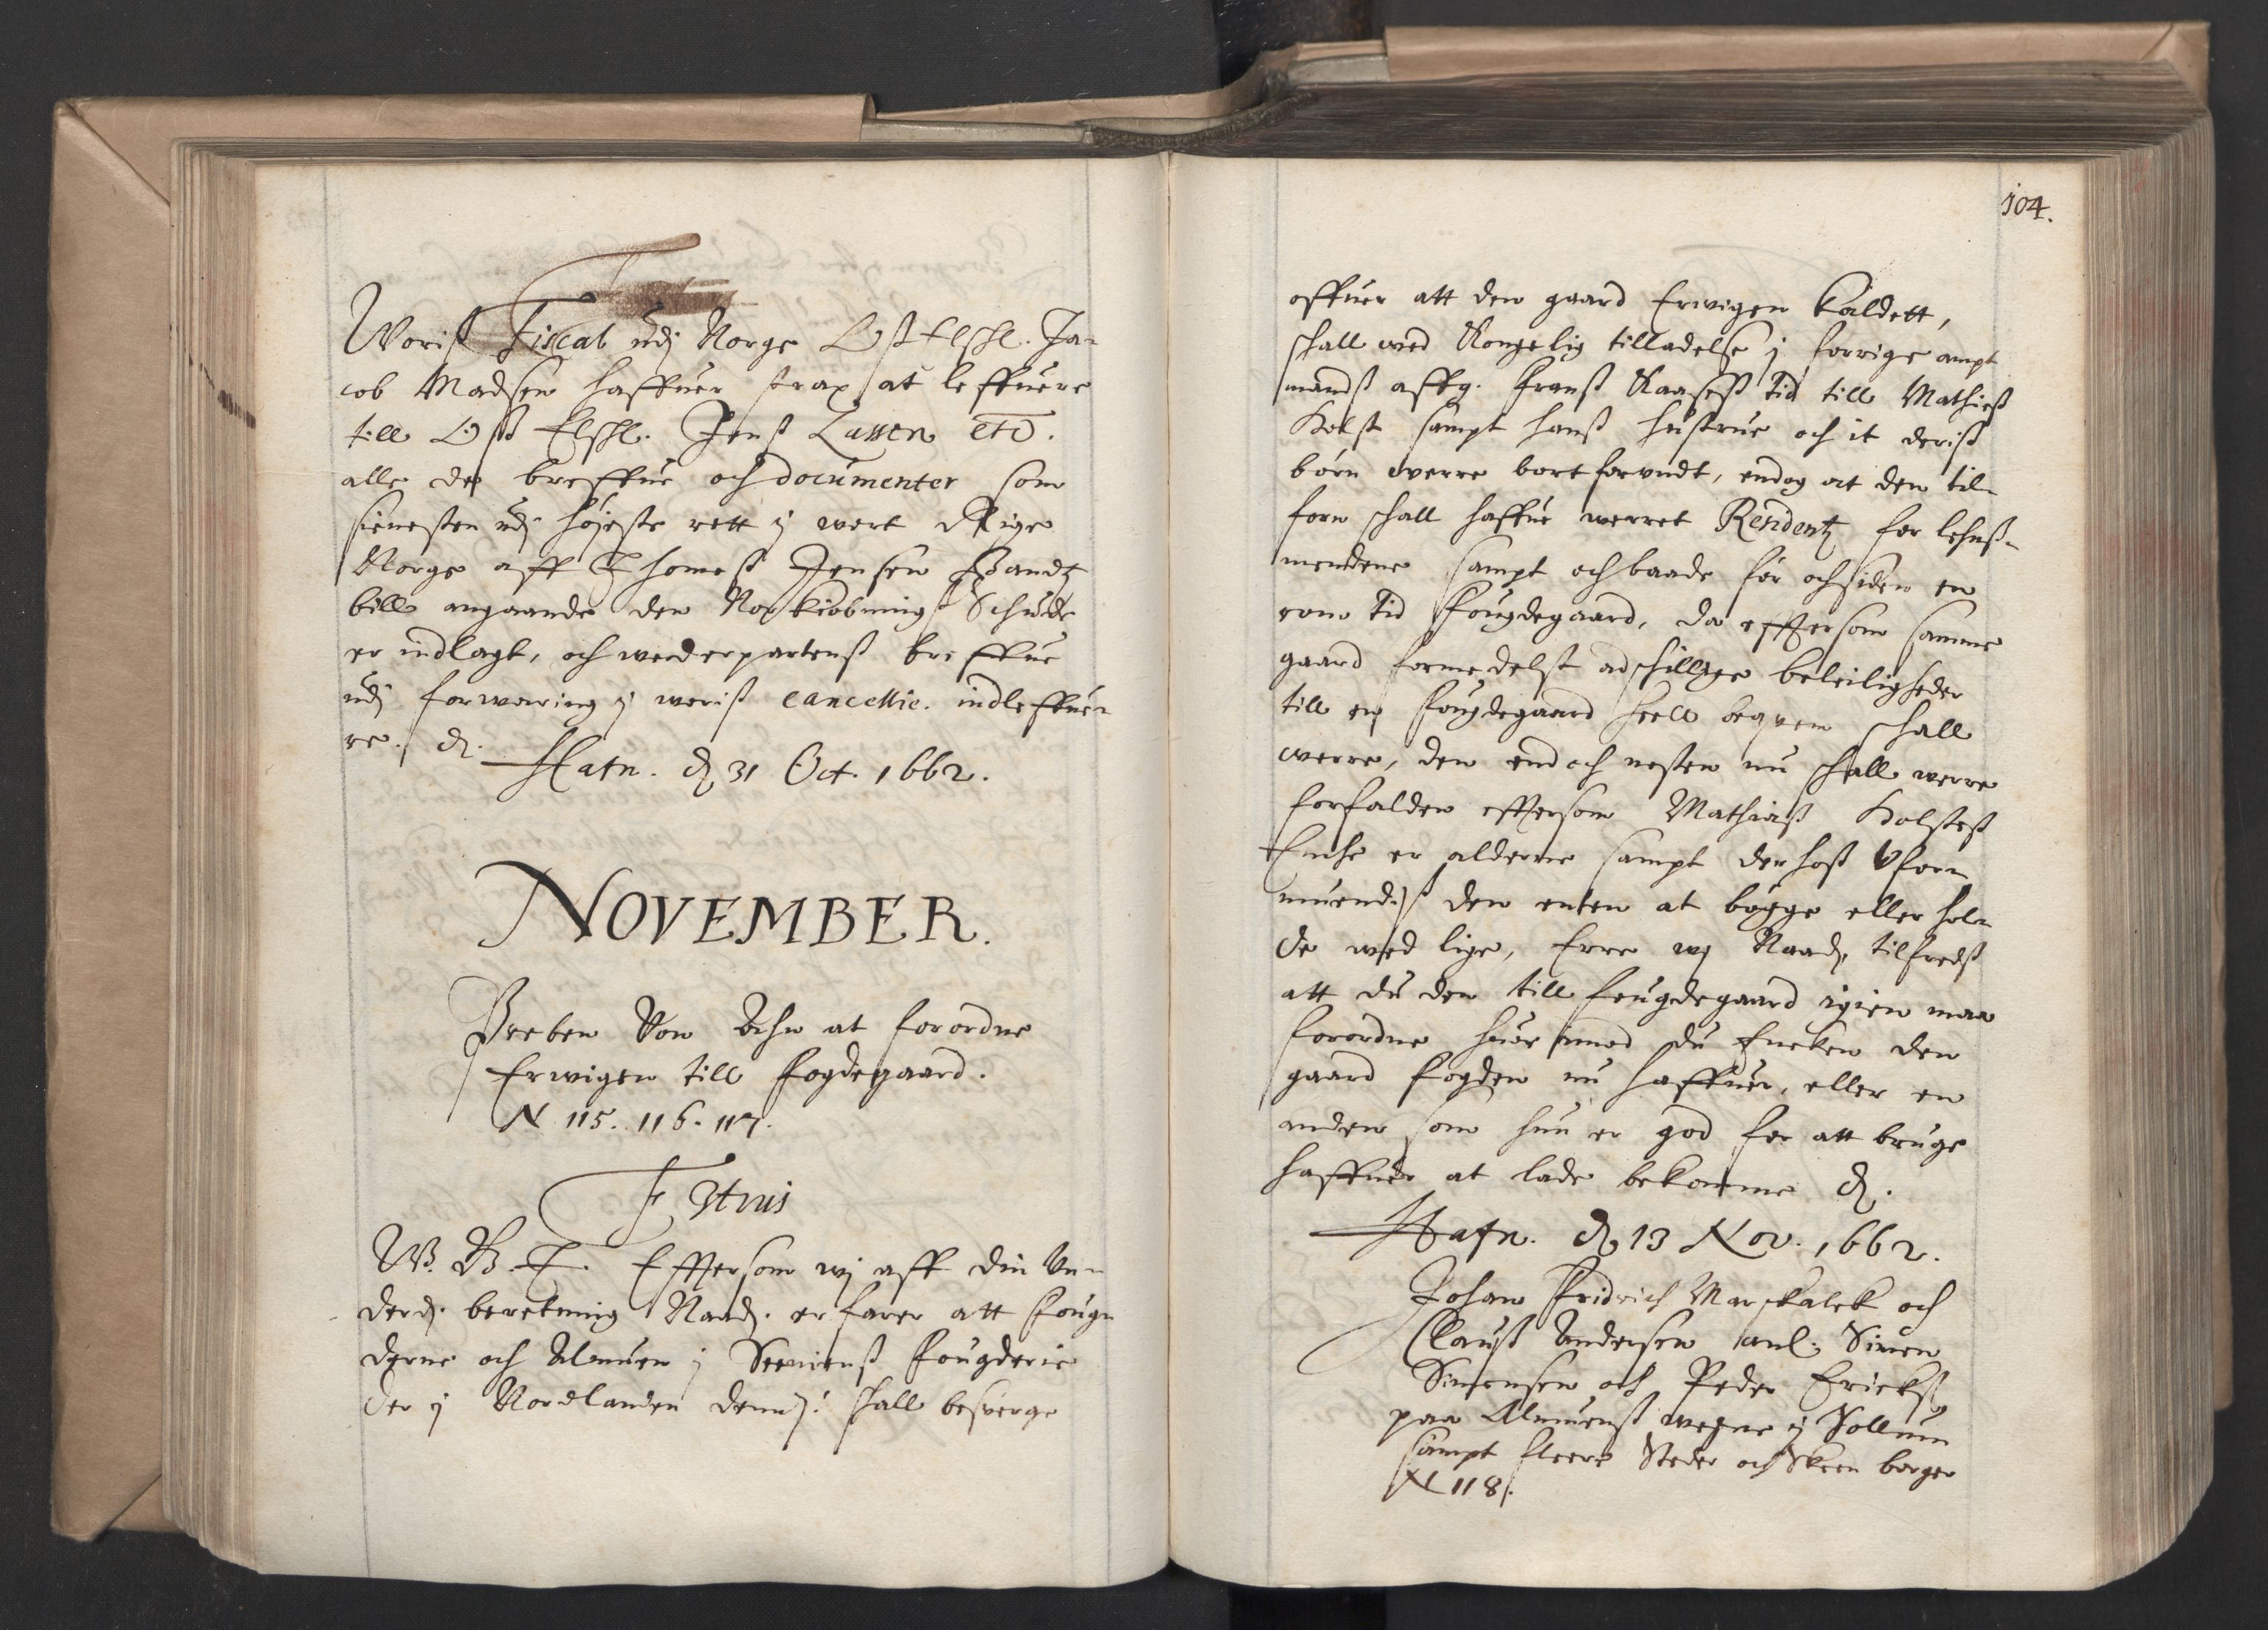 Woriß Fiscal udj Norge Oß Elschl. Ja-
cob Madsen haffuer strax at leffuere
till Oß Elschl. Jenß Lassen etc.
alle de breffue och documenter som
sieneste udj højeste rett j wort Rige
Norge aff Thomeß Jensen
bill angaande den Norkiøbmingß Schude
er indlagt, och wederpartenß breffue
udj forwaring j woriß cancellie. indleffue-
re. D.
Hafn. D 31 Oct. 1662.
NOVEMBER.
Preben Von Ahn at forordne
Erwigen till fogdegaard.
N 115. 116. 117.
F 3tius
W. G. T. Effterson wj aff din Un-
derd. beretning Naad. erfarer att foug-
derne och Almuen j fougderie
der j Nordlanden schall besverge
104.
offuer att den gaard Erwigen kaldett,
schall med Kongelig tilladelse j forrige ampt
mandß affg. Franß Kaaseß tid till Mathiaß
Holst sampt hanß hustrue och it deriß
børn werre bortforundt, endog at den til-
forn schall haffue werret Residentz for lehnß-
mendene sampt och baade før och siden en
rom tid fougdegaard, da effterson samme
gaard formedelst adschillige beleiligheder
till en fougdegaard heell beqvem schall
werre, den endoch nesten nu schall werre
forfalden effterson Mathiaß Holsteß
Encke er alderne sampt derhoß Ufor-
muendiß den enten at bøgge eller hol-
de wed lige, Erre wj Naad. tilfredß
att du den till fougdegaard igien maa
forordne huor imod du Encken den
gaard fogden nu haffuer, eller en
anden som hun er god for att bruge
haffuer at lade bekomme D.
Hafn. D 13 Nov. 1662.
Johan Fridrich Marskalck och
Clauß Andersen anl. Simen
Simensen och Peder Erickß
paa Almuenß wegne j Sollum
sampt fleere Steder och Skeen borger
N 118.